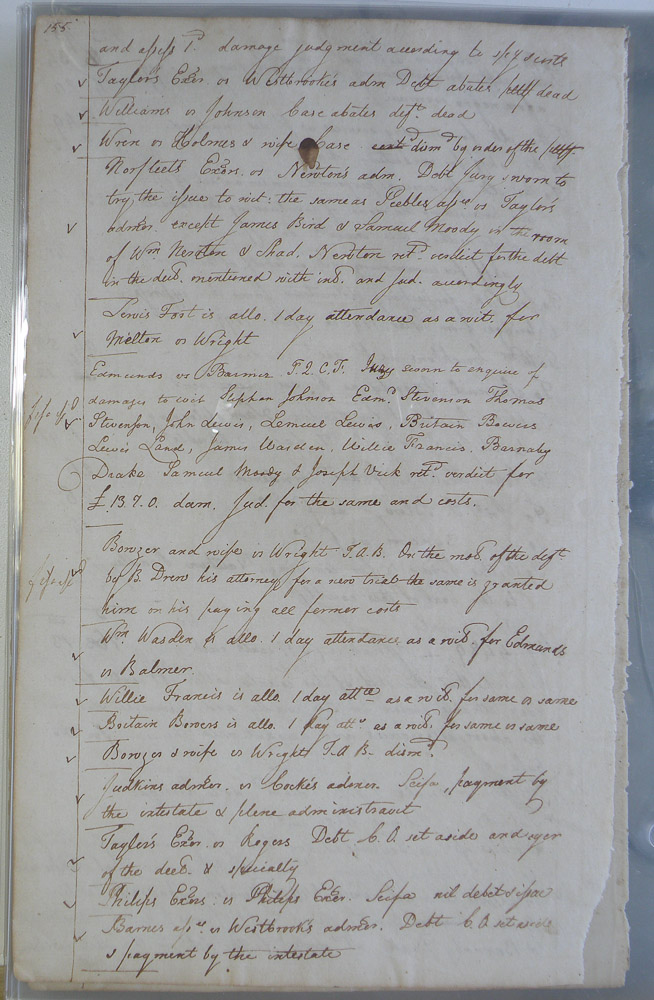 155
and assess 1.d damage judgment according to
Taylor's Exor. vs Westbrook's adm Debt abates pltff dead
Williams vs Johnson Case abates deft. dead
Wren vs Holmes & wife Case dism.d by order of the pltff.
Norfleets Exors. vs Newton's adm. Debt Jury sworn to
try the issue to wit: the same as Peebles assee vs Taylor's
admor. except James Bird & Samuel Moody in the room
of Wm Newton & Shad. Newton ret.d verdict for the debt
in the decl. mentioned with int. and Jud. accordingly
Lewis Fort is allo. 1 day attendance as a wit. for
Melton vs Wright
Edmunds vs Barmer T.Q.C.F. Jury sworn to enquire of
damages to wit Stephen Johnson Edm.d Stevenson Thomas
Stevenson, John Lewis, Lemuel Lewis, Britain Bowers
Lewis Land, James Wasden, Willie Francis, Barnaby
Drake Samuel Moody & Joseph Vick ret.d verdict for
£.13.7.0. dam. Jud. for the same and costs.
Bowzer and wife vs Wright T.A.B. On the mot. of the deft
by B. Drew his attorney for a new trial the same is granted
him on his paying all former costs
Wm. Wasden is allo. 1 day attendance as a wit. for Edmunds
vs Balmer.
Willie Francis is allo. 1 day attce as a wit. for same vs same
Britain Bowers is allo. 1 day atte as a wit. for same vs same
Bowzer & wife vs Wright T.A.B. dism.d
Judkins admor. vs Cocke's admor. Scifa, payment by
the intestate & plene administravit
Taylor's Exor. vs Rogers Debt C.O. set aside and oyer
of the deed. & specialty
Philips Exors. vs Philips Exor. Scifa nil debet & issue
Barnes assee vs Westbrook's admor. Debt C.O set aside
& payment by the intestate